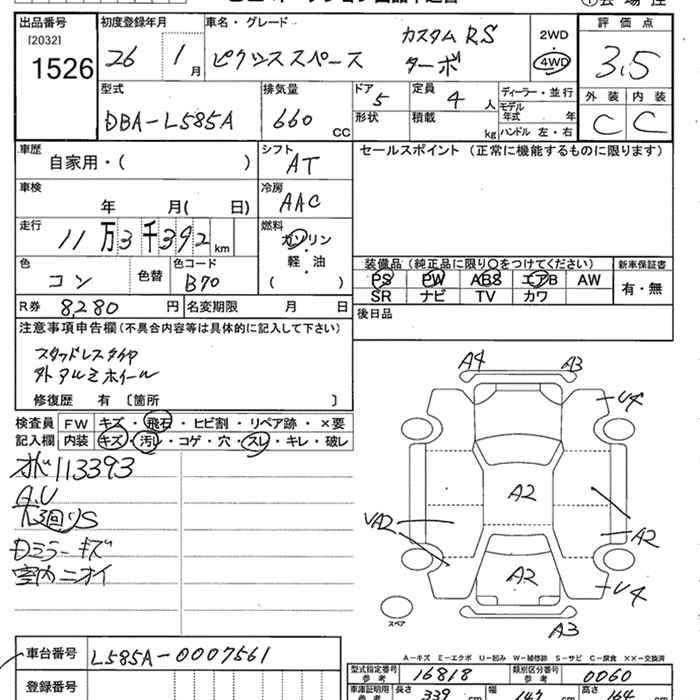 出品番号 初度登録年月 車名・グレード 評価点
[2032]
1526 26 1月 ピクシススペース カスタムRS ターボ 2WD 4WD 3.5
外装 内装
C C
型式 排気量 ドア 定員 ディーラー・並行
DBA-L585A 660 CC 5 4人 モデル年式 年
形状 積載 kg ハンドル 左・右
車歴 シフト セールスポイント (正常に機能するものに限ります)
自家用・( ) AT
車検 冷房
年 月( 日) AAC
走行 燃料
11万3千392km ガソリン
軽・油
( )
色 色替 色コード 装備品 (純正品に限り○をつけてください) 新車保証書
コン B70 PS PW ABS エアB AW 有・無
SR ナビ TV カワ
R券 8,280円 名変期限 月 日 後日品
注意事項申告欄 (不具合内容等は具体的に記入して下さい)
スタッドレスタイヤ
外アルミホイール
修復歴 有 〔箇所 〕
検査員 FW キズ・飛石・ヒビ割・リペア跡・×要
記入欄 内装 キズ・汚レ・コゲ・穴・スレ・キレ・破レ
113393
A.U
S
Dミラーキズ
室内ニオイ
A4 A3
U4
A2
VA2 A2
A2
U4
スペア
A3
A-キズ E-エクボ U-凹み W-補修跡 S-サビ C-腐食 ××-交換済
車台番号 L585A-0007561
登録番号
型式指定番号 参考 16818 類別区分番号 参考 0060
車庫証明用 参考 長さ 339 cm 幅 147 cm 高さ 164 cm